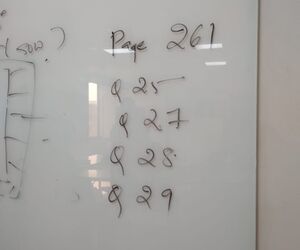 (sow)
Page 261
Q 25
Q 27
Q 28
Q 29